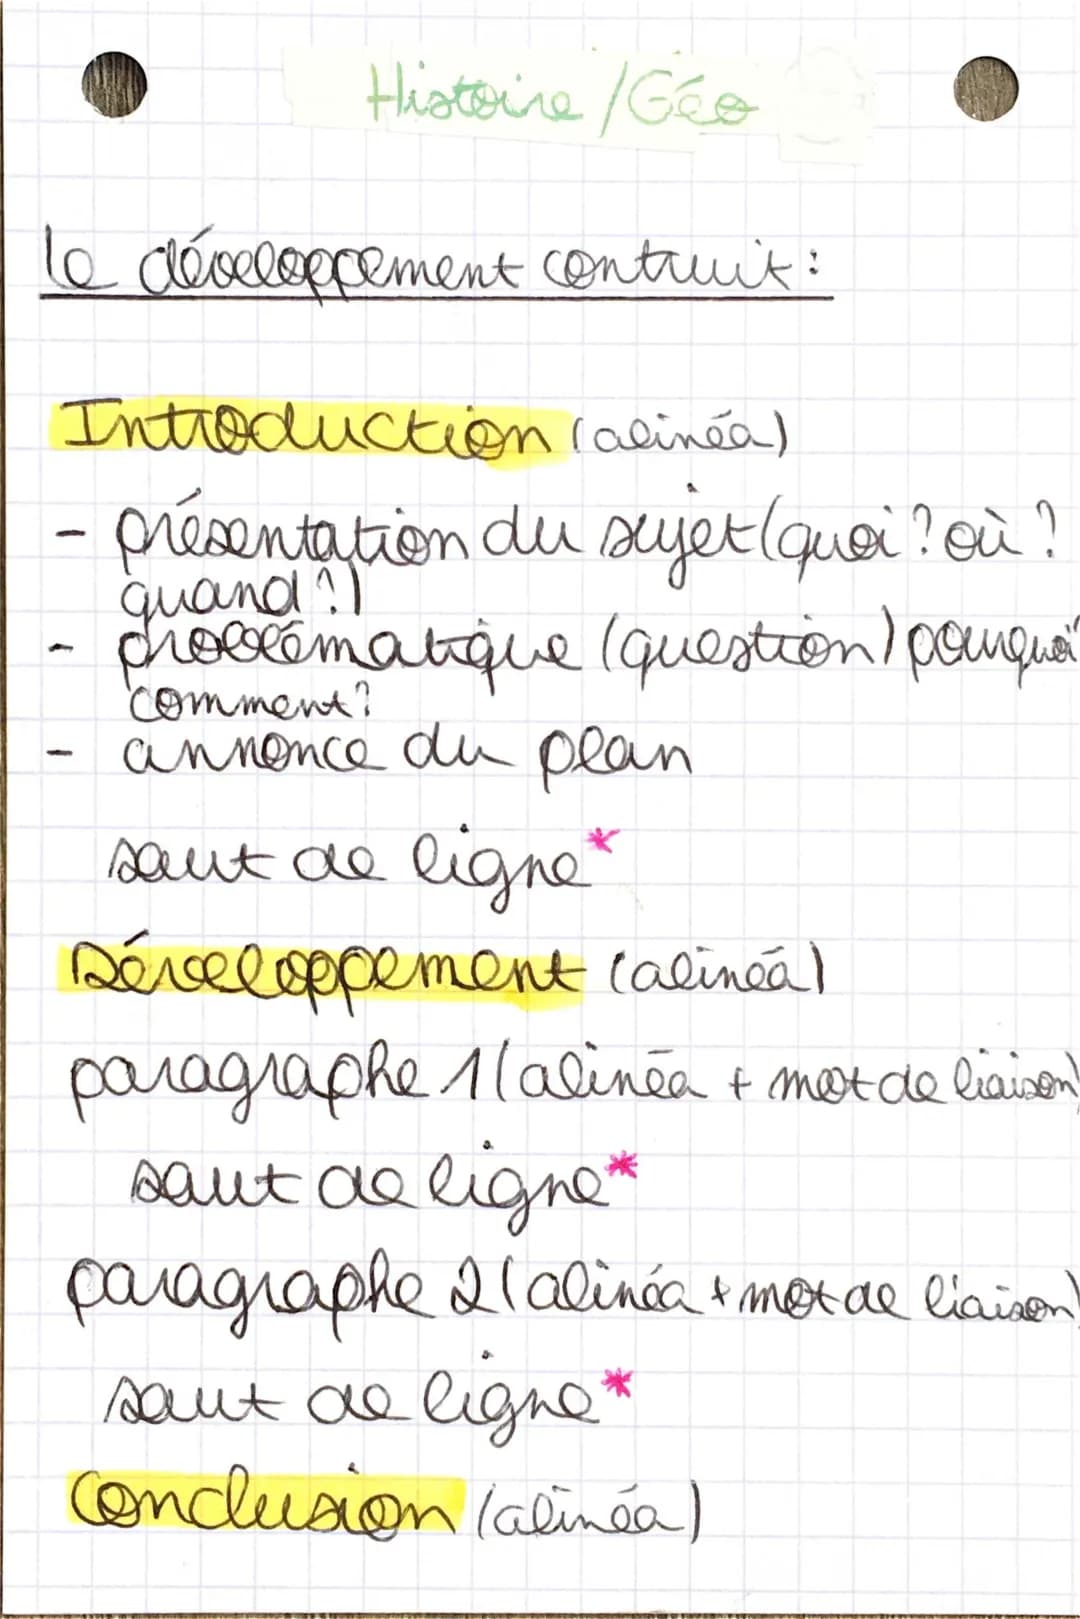 Histoire / Géo
le développement contruit :
Introduction (alinéa)
- présentation du sujet (quoi ? où ?
quand ?)
- problématique (question) pourquoi
comment ?
- annonce du plan
saut de ligne*
Développement (alinéa)
paragraphe 1 (alinéa + mot de liaison)
saut de ligne*
paragraphe 2 (alinéa + mot de liaison)
saut de ligne*
Conclusion (alinéa)